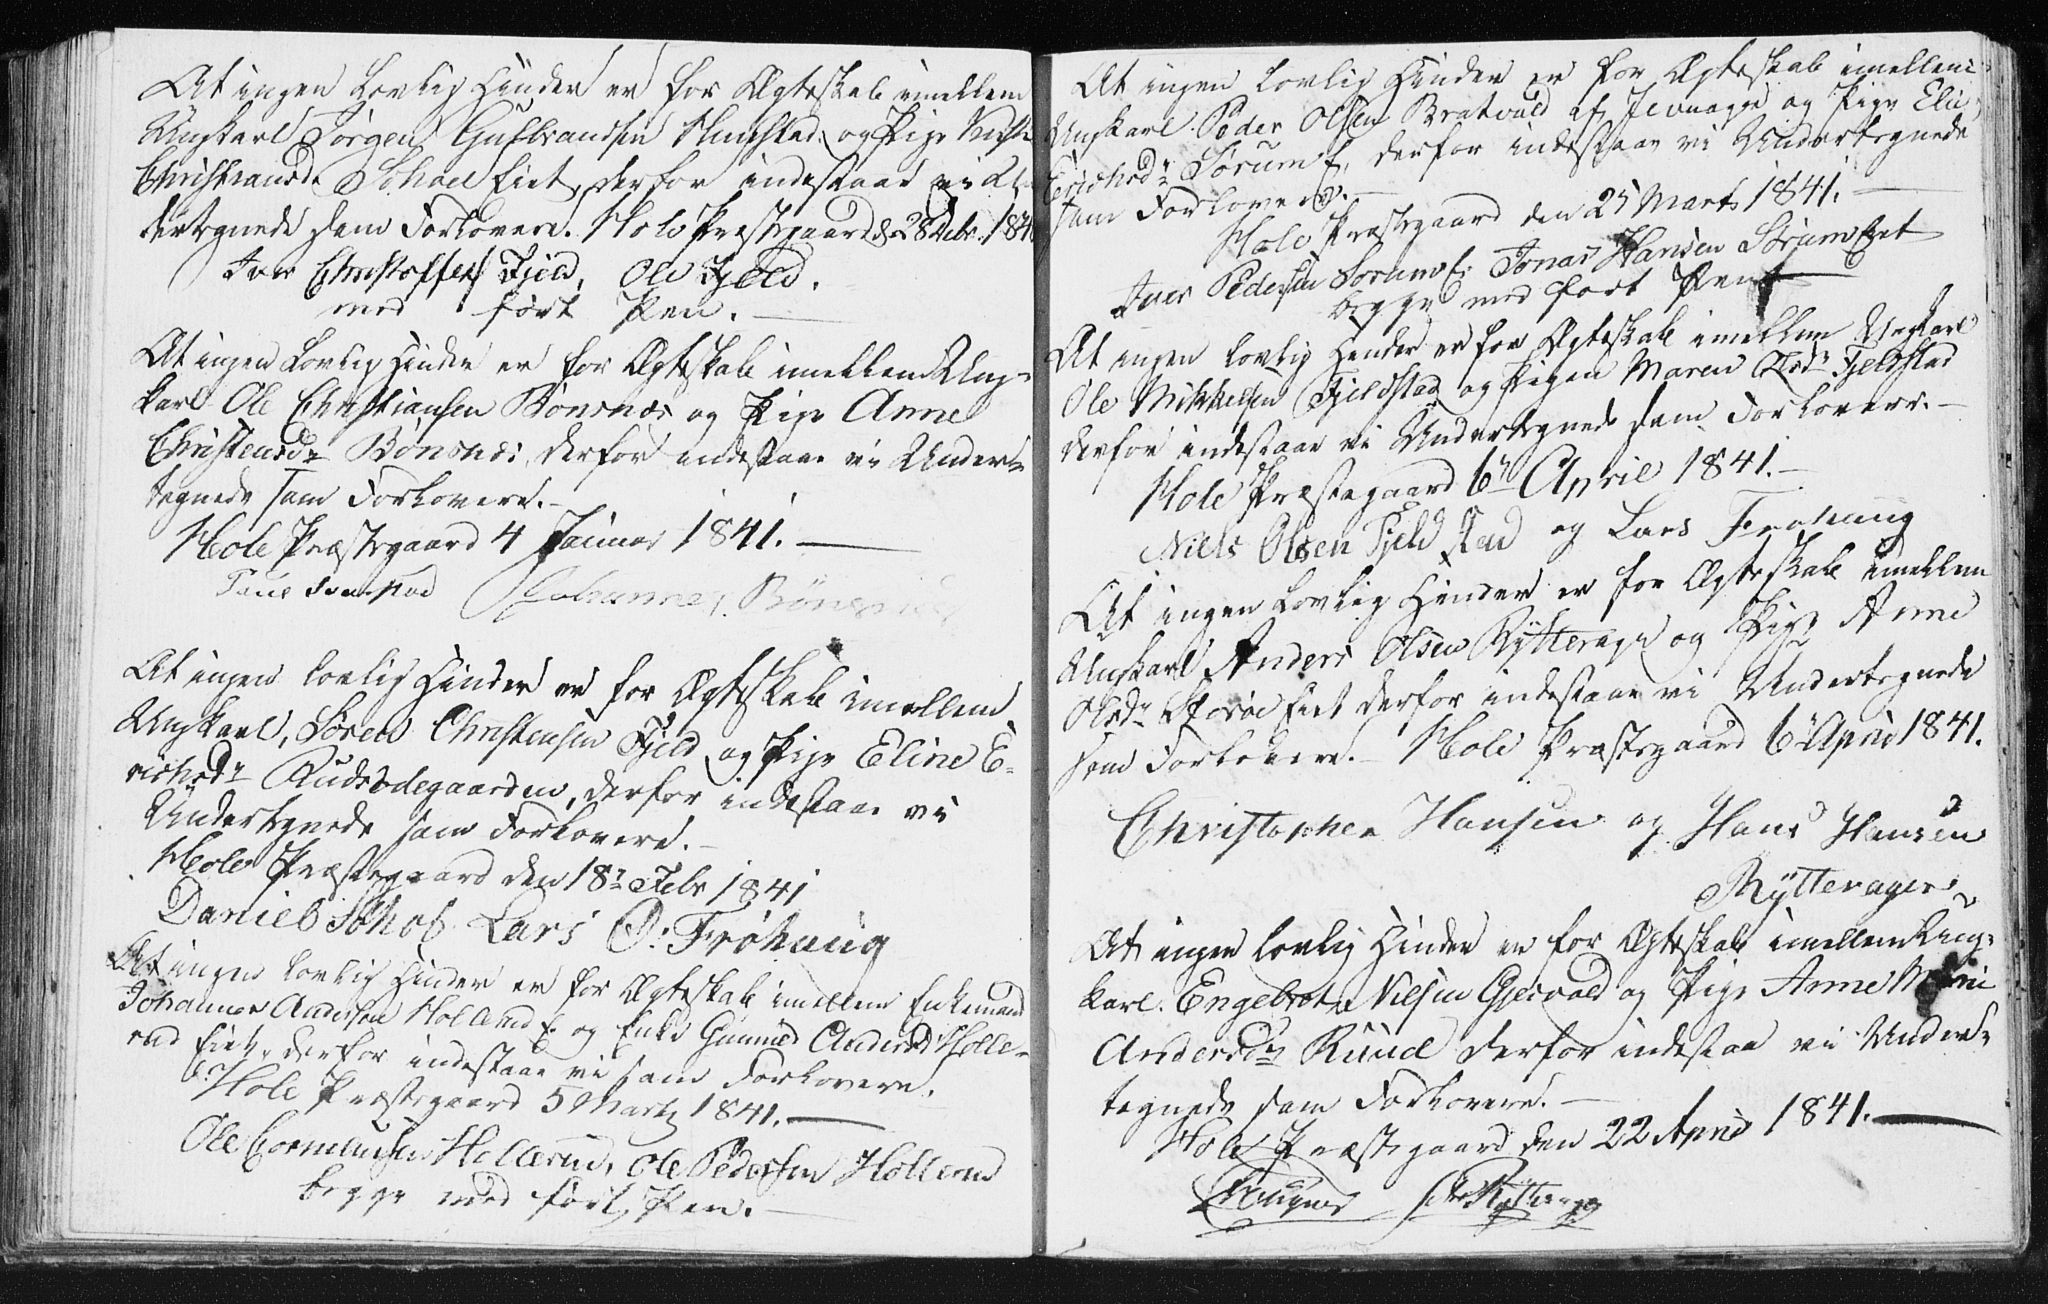 At ingen Lovlig Hinder er for Ægteskab imellem
Ungkarl Jørgen Gulbrandsen og Pige
Christiansd. eiet, derfor indestaae vi Un
dertegnede som Forlovere. Hole Præstegaard d. 28 Debr. 184
Iver Christoffers Fjeld, Ole Fjeld.
med ført Pen.
At ingen Lovlig Hinder er for Ægteskab imellem Ung-
karl Ole Christiansen Bønsnæs og Pige Anne
Christensdr Bønsnæs, derfor indestaae vi Under-
tegnede som Forlovere.
Hole Præstegaard 4 Januar 1841.
Johannes Bønsnæs
At ingen lovlig Hinder er for Ægteskab imellem
Ungkarl, Søren Christensen Fjeld og Pige Eline E-
richsdr Rudsødegaarden, derfor indestaae vi
Undertegnede som Forlovere.
Hole Præstegaard den 18de Febr 1841
Daniel Lars O: Frøhaug
At ingen lovlig Hinder er for Ægteskab imellem Enkemand
Johannes Andersen Hollerud E. og Enke Gunnild Andersd Holle-
rud Eiet, derfor indestaae vi som Forlovere.
Hole Præstegaard 5 Marts 1841.
Ole Corneliusen Hollerud, Ole Pedersen Hollerud
begge med ført Pen.
At ingen lovlig Hinder er for Ægteskab imellem
Ungkarl Peder Olsen Bratvold af Jevnager og Pige Elie
Erichsdr Sørum E. derfor indestaae vi Undertegnede
som Forlovere.
Hole Præstegaard den 25 Marts 1841.
Iver Pedersen Sørum E. Jonas Hansen Sørum Eiet
begge med ført Pen
At ingen lovlig Hinder er for Ægteskab imellem Ungkarl
Ole Mikkelsen Fjeldstad og Pigen Maren Olsdr Fjeldstad
derfor indestaae vi Undertegnede som Forlovere.
Hole Præstegaard 6te April 1841.
Niels Olsen Fjeldstad og Lars Frøhaug
At ingen Lovlig Hinder er for Ægteskab imellem
Ungkarl Anders Olsen Rytterager og Pige Anne
Olsdr Storøe Eiet derfor indestaae vi Undertegnede
som Forlovere. Hole Præstegaard 6te April 1841.
Christopher Hansen og Hans Hansen
Rytterager
At ingen lovlig Hinder er for Ægteskab imellem Ung-
karl Engebret Nilsen Gjesvold og Pige Anne Marie
Andersdr Ruud derfor indestaae vi Under-
tegnede som Forlovere.
Hole Præstegaard den 22 April 1841.
Rytterager